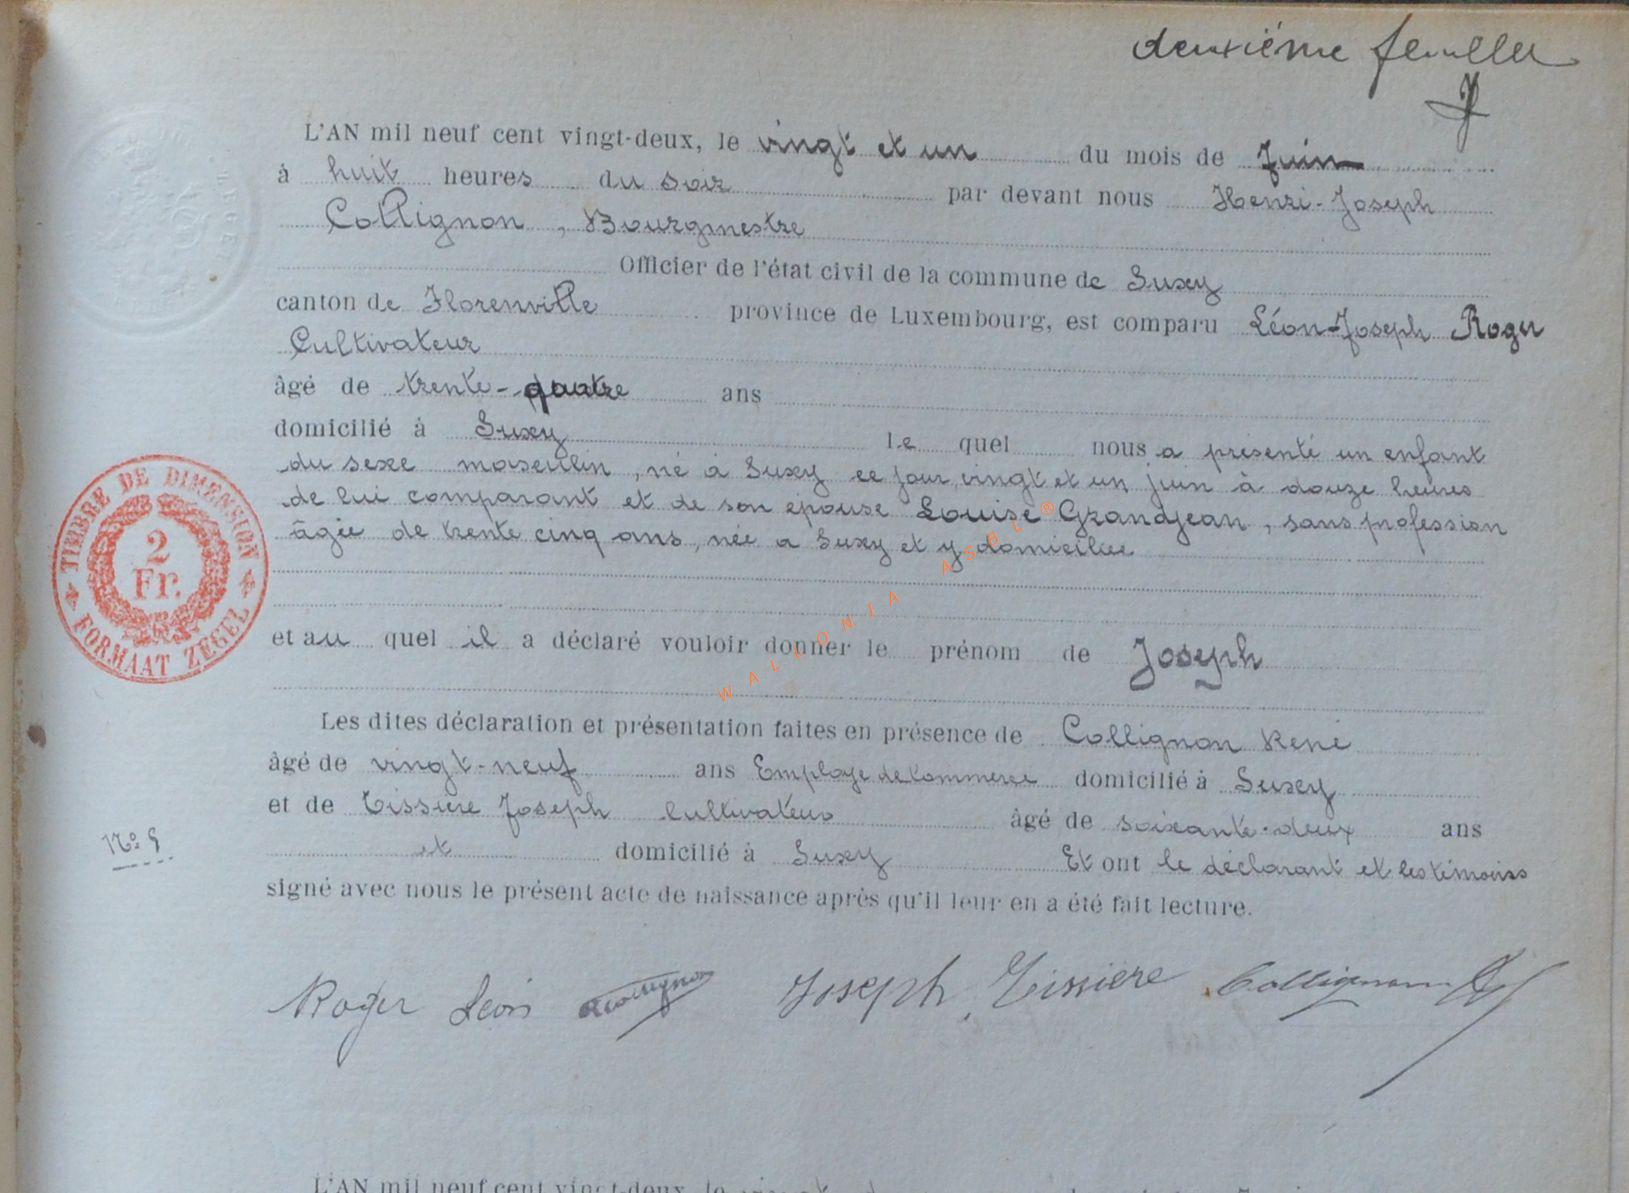 deuxième feuillet
L'AN mil neuf cent vingt-deux, le vingt et un du mois de Juin
à huit heures du soir par devant nous Henri-Joseph
Collignon, Bourgmestre
Officier de l'état civil de la commune de Suxy
canton de Florenville province de Luxembourg, est comparu Léon-Joseph Roger
Cultivateur
âgé de trente-quatre ans
domicilié à Suxy le quel nous a présenté un enfant
du sexe masculin, né à Suxy ce jour vingt et un juin à douze heures
de lui comparant et de son épouse Louise Grandjean, sans profession
âgée de trente cinq ans, née a Suxy et y domiciliée
WALLONIA ASBL®
et au quel il a déclaré vouloir donner le prénom de Joseph
Les dites déclaration et présentation faites en présence de Collignon René
âgé de vingt-neuf ans Employé de Commerce domicilié à Suxy
et de Tissière Joseph Cultivateur âgé de soixante-deux ans
N° 9
et domicilié à Suxy Et ont le déclarant et les témoins
signé avec nous le présent acte de naissance après qu'il leur en a été fait lecture.
Roger Léon RCollignon Joseph Tissière Collignon
TIMBRE DE DIMENSION
2
Fr.
FORMAAT ZEGEL
L'AN mil neuf cent vingt-deux, le